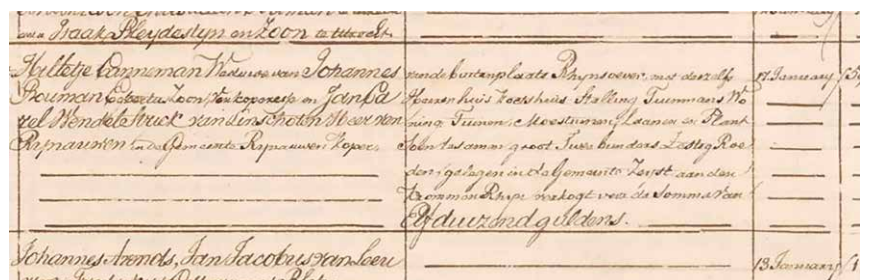 Isaak Pleydestyn en Zoon te Utrecht
Hilletje Canneman Weduwe van Johannes
Bouman Zoon, Verkoopers en Jan Ca
rel Wendel Strick van Linschoten Heer van
Rijnauwen in de Gemeente Rijnauwen Koper.
van de buitenplaats Rhijnsoever, met deszelfs
Heerenhuis Koetshuis Stalling Tuinmans Wo
ning Tuinen, Moestuinen, Laanen en Plant
soen te samen groot Twee bunders Zestig Roe
den, gelegen in de Gemeente Zeyst aan den
krommen Rhijn verkogt voor de Somma van
Elfduizend guldens.
17 January
Johannes Arends, Jan Jacobus van Leeu
13 January